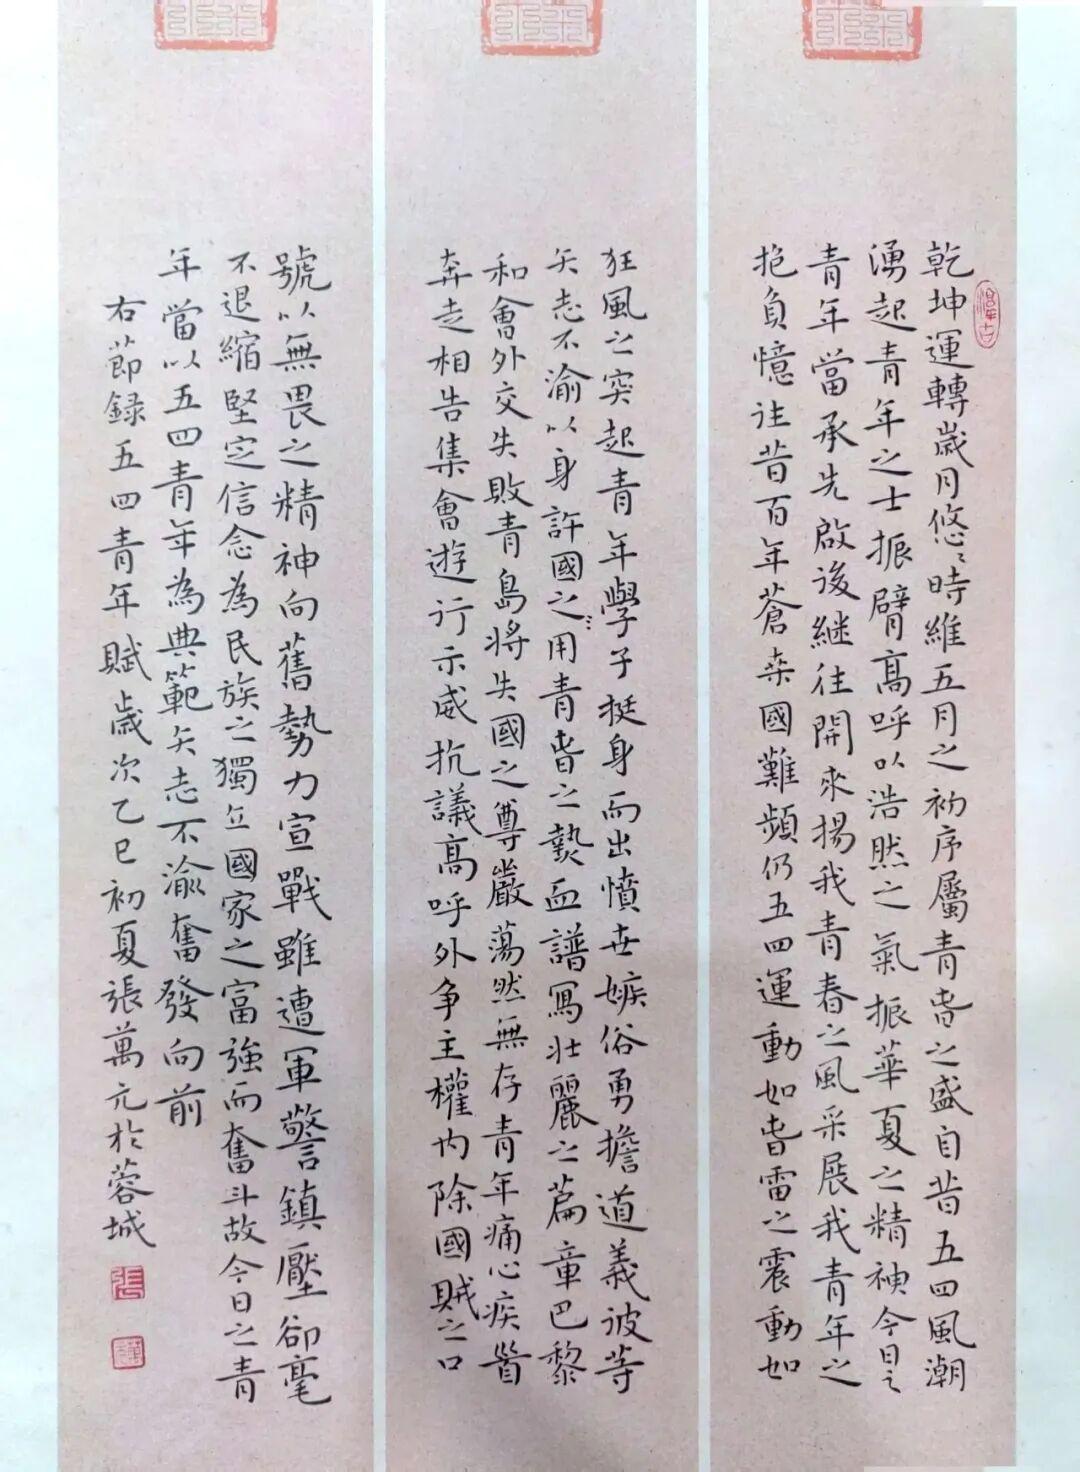 乾坤運轉歲月悠〻時維五月之初序屬青春之盛自昔五四風潮
湧起青年之士振臂高呼以浩然之氣振華夏之精神今日之
青年當承先啟後繼往開來揚我青春之風采展我青年之
抱負憶往昔百年蒼桑國難頻仍五四運動如春雷之震動如
狂風之突起青年學子挺身而出憤世嫉俗勇擔道義彼等
矢志不渝以身許國之用青春之熱血譜寫壯麗之篇章巴黎
和會外交失敗青島將失國之尊嚴蕩然無存青年痛心疾首
奔走相告集會遊行示威抗議高呼外争主權內除國賊之口
號以無畏之精神向舊勢力宣戰雖遭軍警鎮壓卻毫
不退縮堅定信念為民族之獨立國家之富強而奮斗故今日之青
年當以五四青年為典範矢志不渝奮發向前
右節録五四青年賦歲次乙巳初夏張萬元於蓉城
張